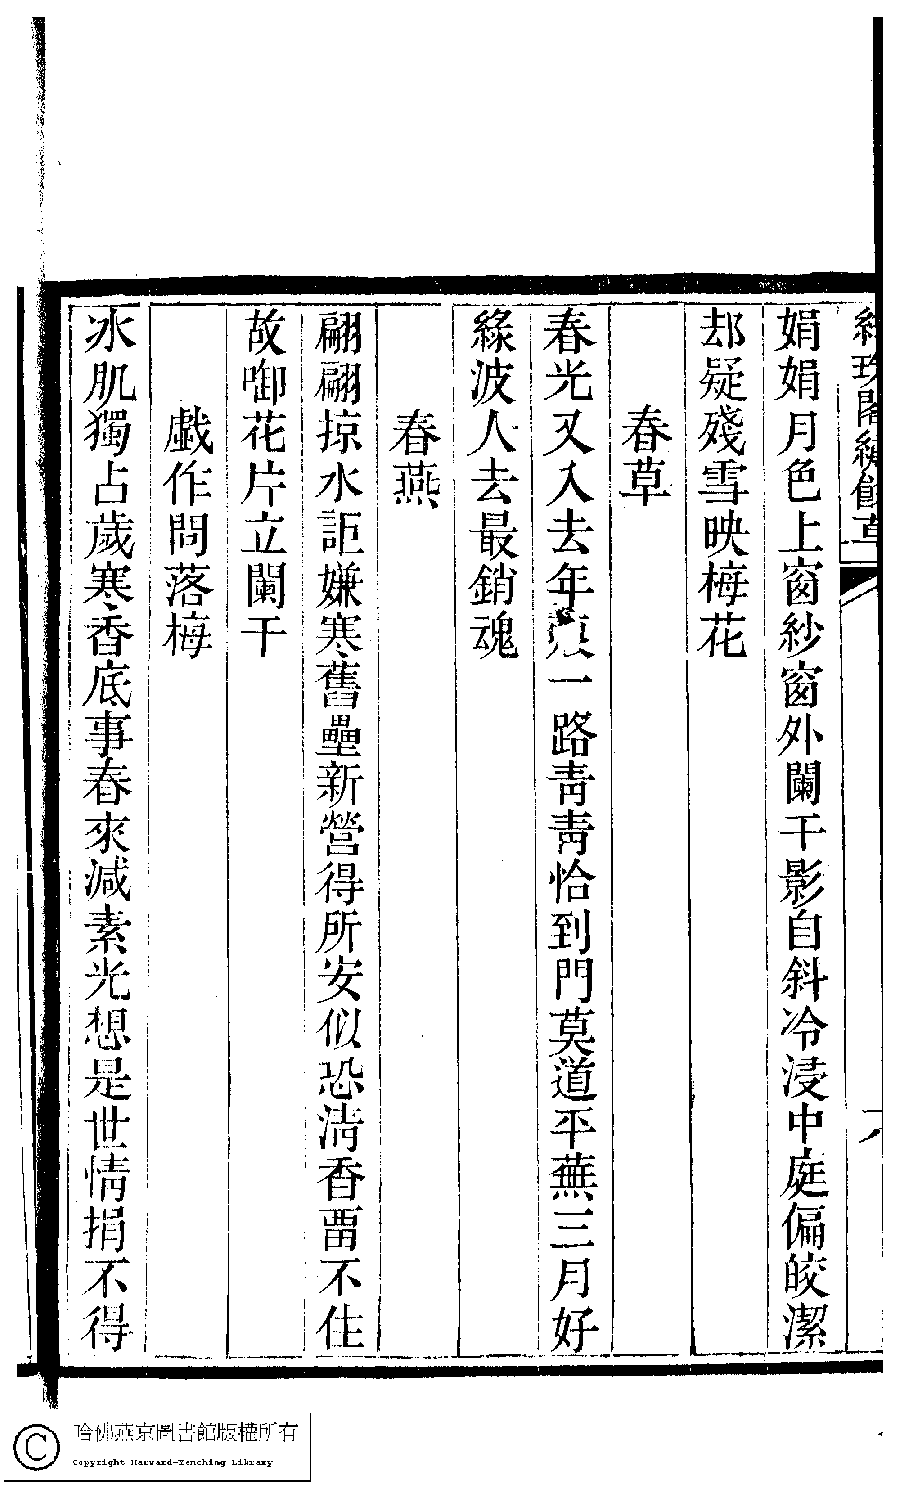 閣繡餘草
娟娟月色上窗紗窗外闌干影自斜冷浸中庭偏皎潔
却疑殘雪映梅花
春草
春光又入去年一路青青恰到門莫道平蕪三月好
綠波人去最銷魂
春燕
翩翩掠水詎嫌寒舊壘新營得所安似恐清香畱不住
故啣花片立闌干
戲作問落梅
冰肌獨占歲寒香底事春來減素光想是世情捐不得
哈佛燕京圖書館版權所有
Copyright Harvard-Yenching Library